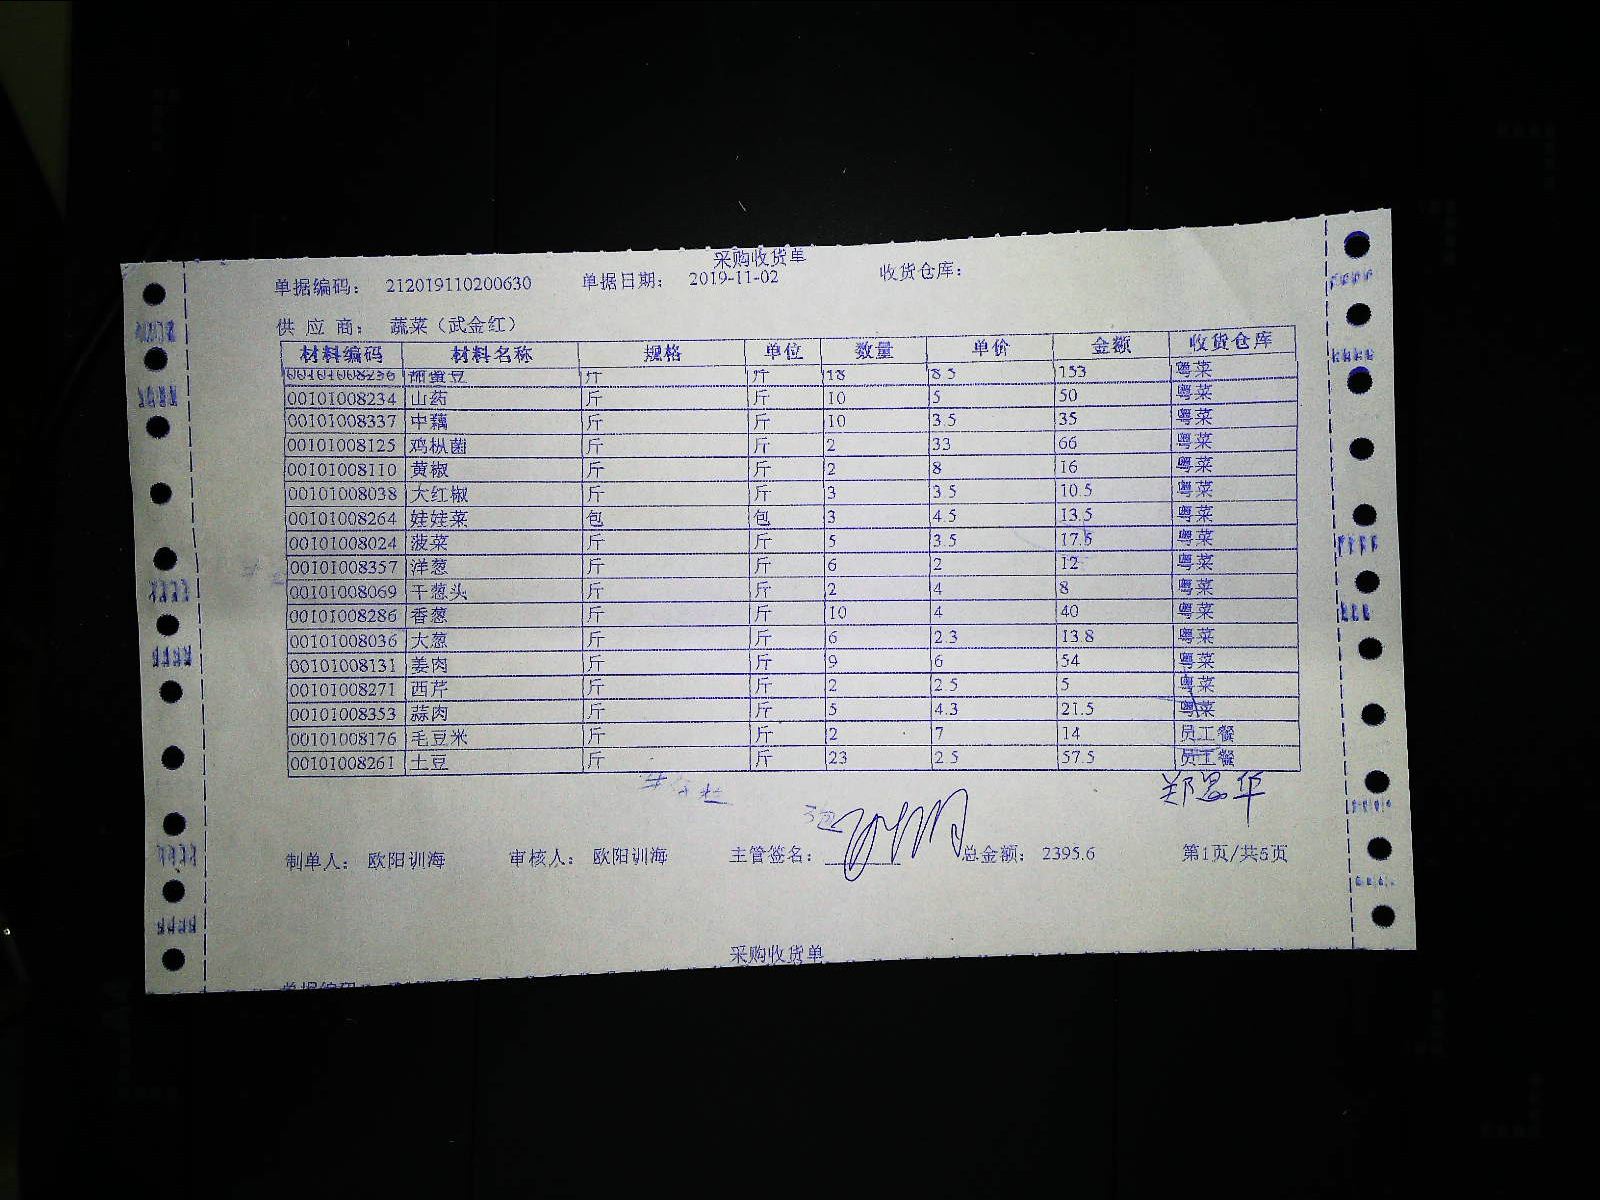 采购收货单
单据编码： 212019110200630 单据日期： 2019-11-02 收货仓库：
供 应 商： 蔬菜（武金红）
材料编码 材料名称 规格 单位 数量 单价 金额 收货仓库
00101008236 甜蜜豆 斤 斤 18 8.5 153 粤菜
00101008234 山药 斤 斤 10 5 50 粤菜
00101008337 中藕 斤 斤 10 3.5 35 粤菜
00101008125 鸡枞菌 斤 斤 2 33 66 粤菜
00101008110 黄椒 斤 斤 2 8 16 粤菜
00101008038 大红椒 斤 斤 3 3.5 10.5 粤菜
00101008264 娃娃菜 包 包 3 4.5 13.5 粤菜
00101008024 菠菜 斤 斤 5 3.5 17.5 粤菜
00101008357 洋葱 斤 斤 6 2 12 粤菜
00101008069 干葱头 斤 斤 2 4 8 粤菜
00101008286 香葱 斤 斤 10 4 40 粤菜
00101008036 大葱 斤 斤 6 2.3 13.8 粤菜
00101008131 姜肉 斤 斤 9 6 54 粤菜
00101008271 西芹 斤 斤 2 2.5 5 粤菜
00101008353 蒜肉 斤 斤 5 4.3 21.5 粤菜
00101008176 毛豆米 斤 斤 2 7 14 员工餐
00101008261 土豆 斤 斤 23 2.5 57.5 员工餐
郑思华
制单人： 欧阳训海 审核人： 欧阳训海 主管签名： 总金额： 2395.6 第1页/共5页
采购收货单
单据编码